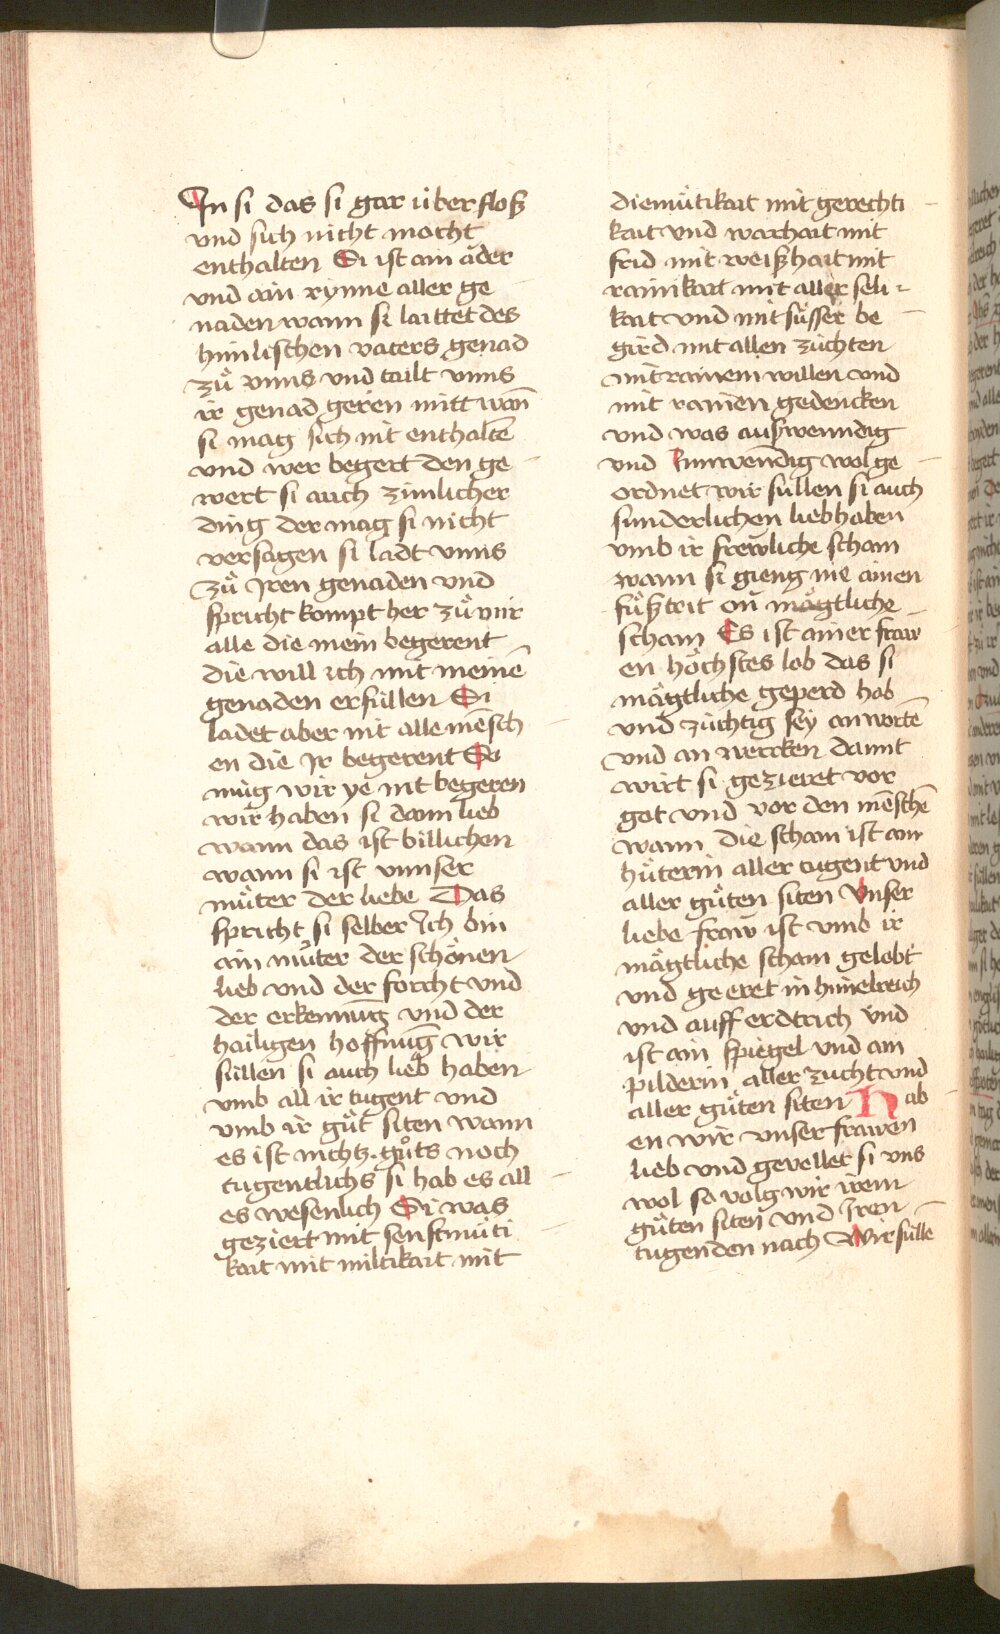 In si das si gar über floß
vnd sich nicht mocht
enthalten Si ist ain ader
vnd ain rynne aller ge
naden wann si laittet des
himlischen vaters genad
zů vnns vnd tailt vnns
ir genad geren mitt wañ
si mag sich nit enthaltē
vnd wer begert den ge
wert si auch zimlicher
ding der mag si nicht
versagen si ladt vnns
zů Iren genaden vnd
spricht kompt her zů mir
alle die mein begerent
die will ich mit meinē
genaden erfüllen Si
ladet aber nit alle mēsch
en die Ir begerent So
müg wir ye nit begeren
wir haben si dann lieb
wann das ist billichen
wann si ist vnnser
můter der liebe Das
spricht si selber Ich bin
ain můter der schönen
lieb vnd der forcht vnd
der erkennūg vnd der
hailigen hoffnūg wir
süllen si auch lieb haben
vmb all ir tugent vnd
vmb ir gůt siten wann
es ist nichtz gůts noch
tugentlichs si hab es all
es wesenlich Si was
geziert mit senftmüti
kait mit miltikait mit
diemütikait mit gerechti
kait vnd warhait mit
frid mit weißhait mit
rainikait mit aller seli
kait vnd mit süsser be
gird mit allen züchten
mit rainem willen vnd
mit rainen gedencken
vnd was außwenndig
vnd Innwendig wol ge
ordnet wir süllen si auch
sunderlichen lieb haben
vmb ir frewliche scham
wann si gieng nie ainen
fůßtrit on mägtliche
scham Es ist ainer fraw
en höchstes lob das si
mägtliche geperd hab
vnd züchtig sey an wortē
vnd an wercken damit
wirt si gezieret vor
got vnd vor den mēschē
wann die scham ist ain
hüterin aller tugent vnd
aller gůten siten Vnser
liebe fraw ist vmb ir
mägtliche scham gelobt
vnd geeret in himelreich
vnd auff erdtrich vnd
ist ain spiegel vnd ain
pilderin aller zucht vnd
aller gůten siten Hab
en wir vnser frawen
lieb vnd gevellet si vns
wol so volg wir irem
gůten siten vnd Iren
tugenden nach Wir süllē